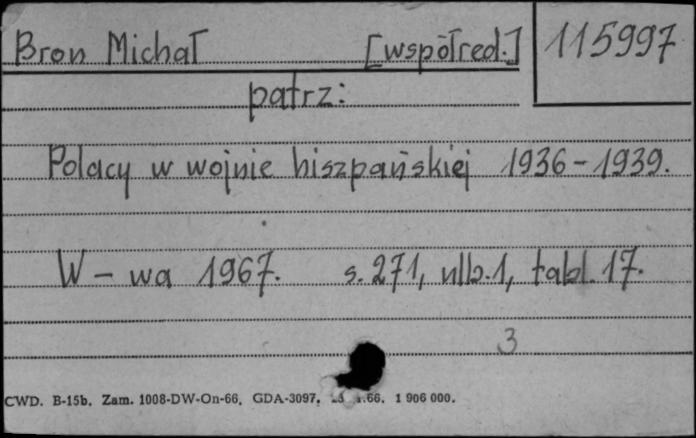 Bron Michał [współred.] 115997
patrz:
Polacy w wojnie hiszpańskiej 1936-1939.
W-wa 1967. s. 271, nlb. 1, tabl. 17.
3
CWD. B-15b. Zam. 1008-DW-On-66. GDA-3097. .66. 1 906 000.